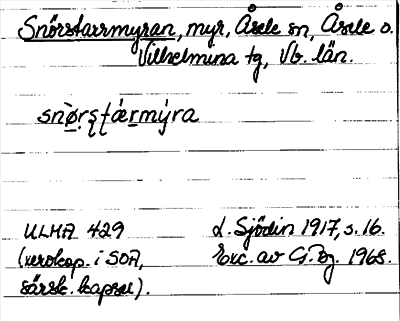 Snörstarrmyran, myr, Åsele sn, Åsele o.
Vilhelmina tg, Vb. län.
snø̀rʂʈármýra
ULMA 429
(xerokop. i SOA,
särsk. kapsel).
L. Sjödin 1917, s. 16.
Exc. av G. Bg. 1968.